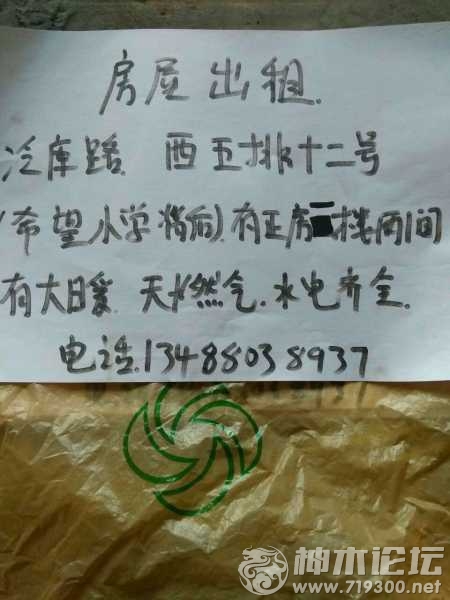 房屋出租.
冷库路 西五排十二号
(希望小学背后).有正房 楼两间
有大暖 天然气.水电齐全.
电话.13488038937
神木论坛
www.719300.net